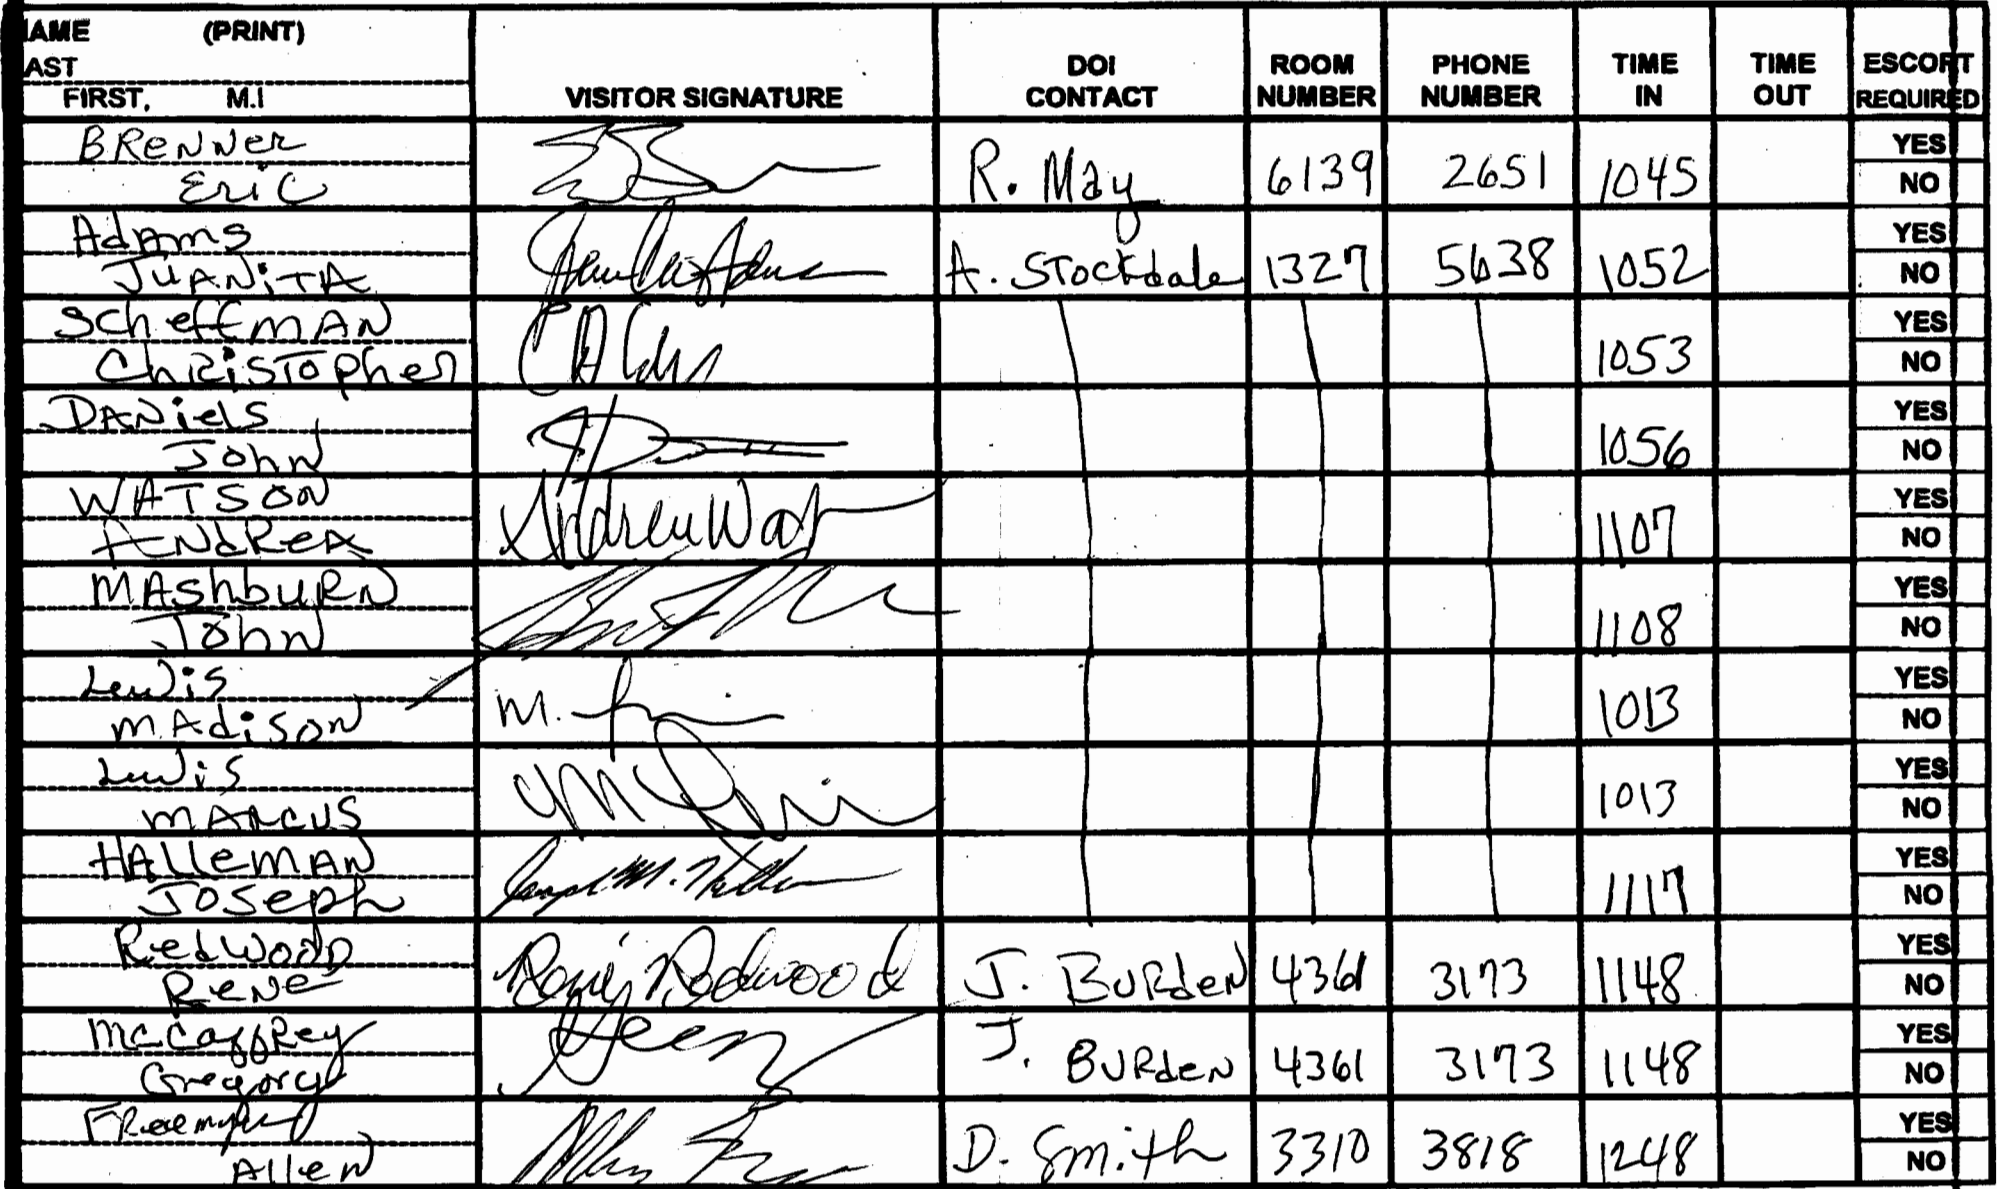 AME (PRINT)
AST
FIRST, M.I
VISITOR SIGNATURE
DOI
CONTACT
ROOM
NUMBER
PHONE
NUMBER
TIME
IN
TIME
OUT
ESCORT
REQUIRED
BRENNER
ERIC
R. May 6139 2651 1045
YES
NO
Adams
JUANITA
A. Stockdale 1327 5638 1052
YES
NO
ScheffMAN
ChRISTOPher
1053
YES
NO
DANieLS
John
1056
YES
NO
WATSON
ANdReA
Andrea Wat
1107
YES
NO
MAShbuRN
John
1108
YES
NO
Lewis
MAdiSON
M.
1013
YES
NO
Lewis
MARCUS
1013
YES
NO
HALLeMAN
JOSeph
Joseph M.
1117
YES
NO
RedWOOD
RENE
René Redwood
J. BURdeN 4361 3173 1148
YES
NO
McCaffRey
Gregory
J. BURdeN 4361 3173 1148
YES
NO
Allen
D. Smith 3310 3818 1248
YES
NO